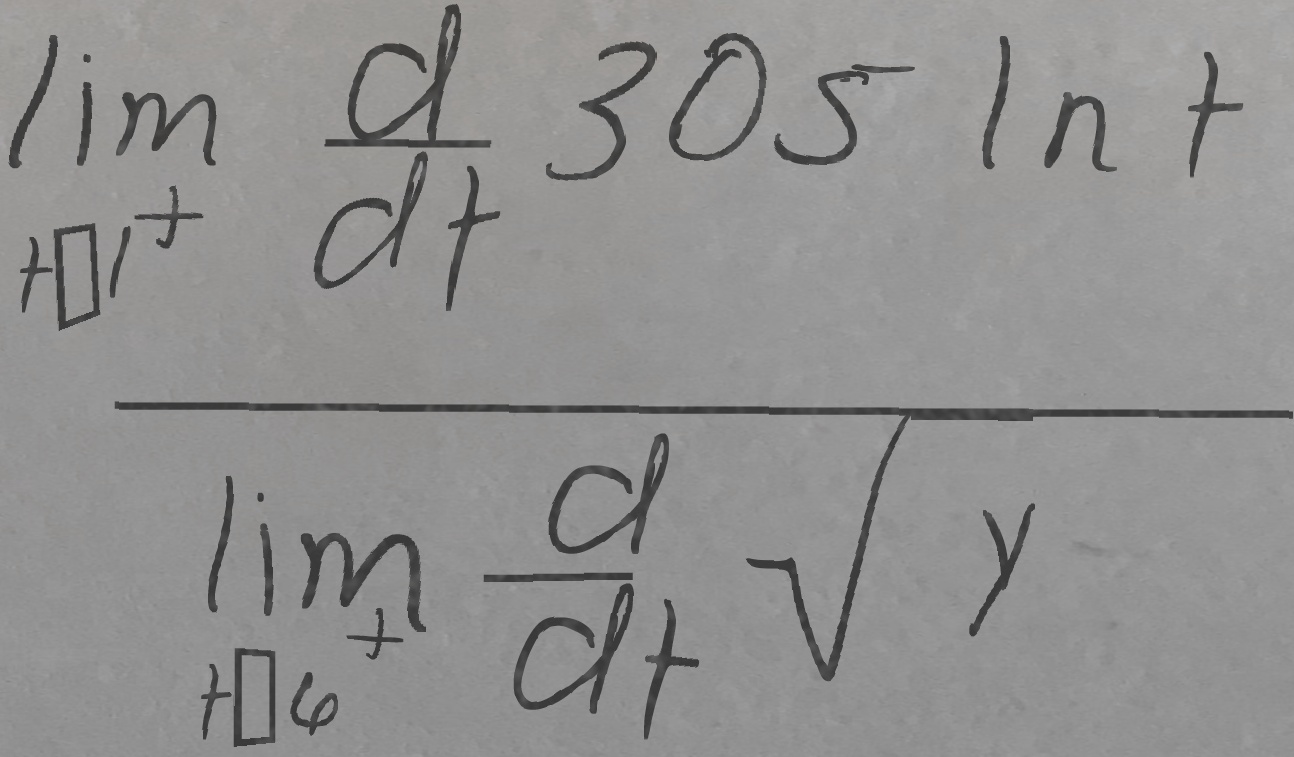 \frac{\lim_{t \square 1^{+}} \frac{d}{dt} 305 \ln t}{\lim_{t \square 6^{+}} \frac{d}{dt} \sqrt{y}}